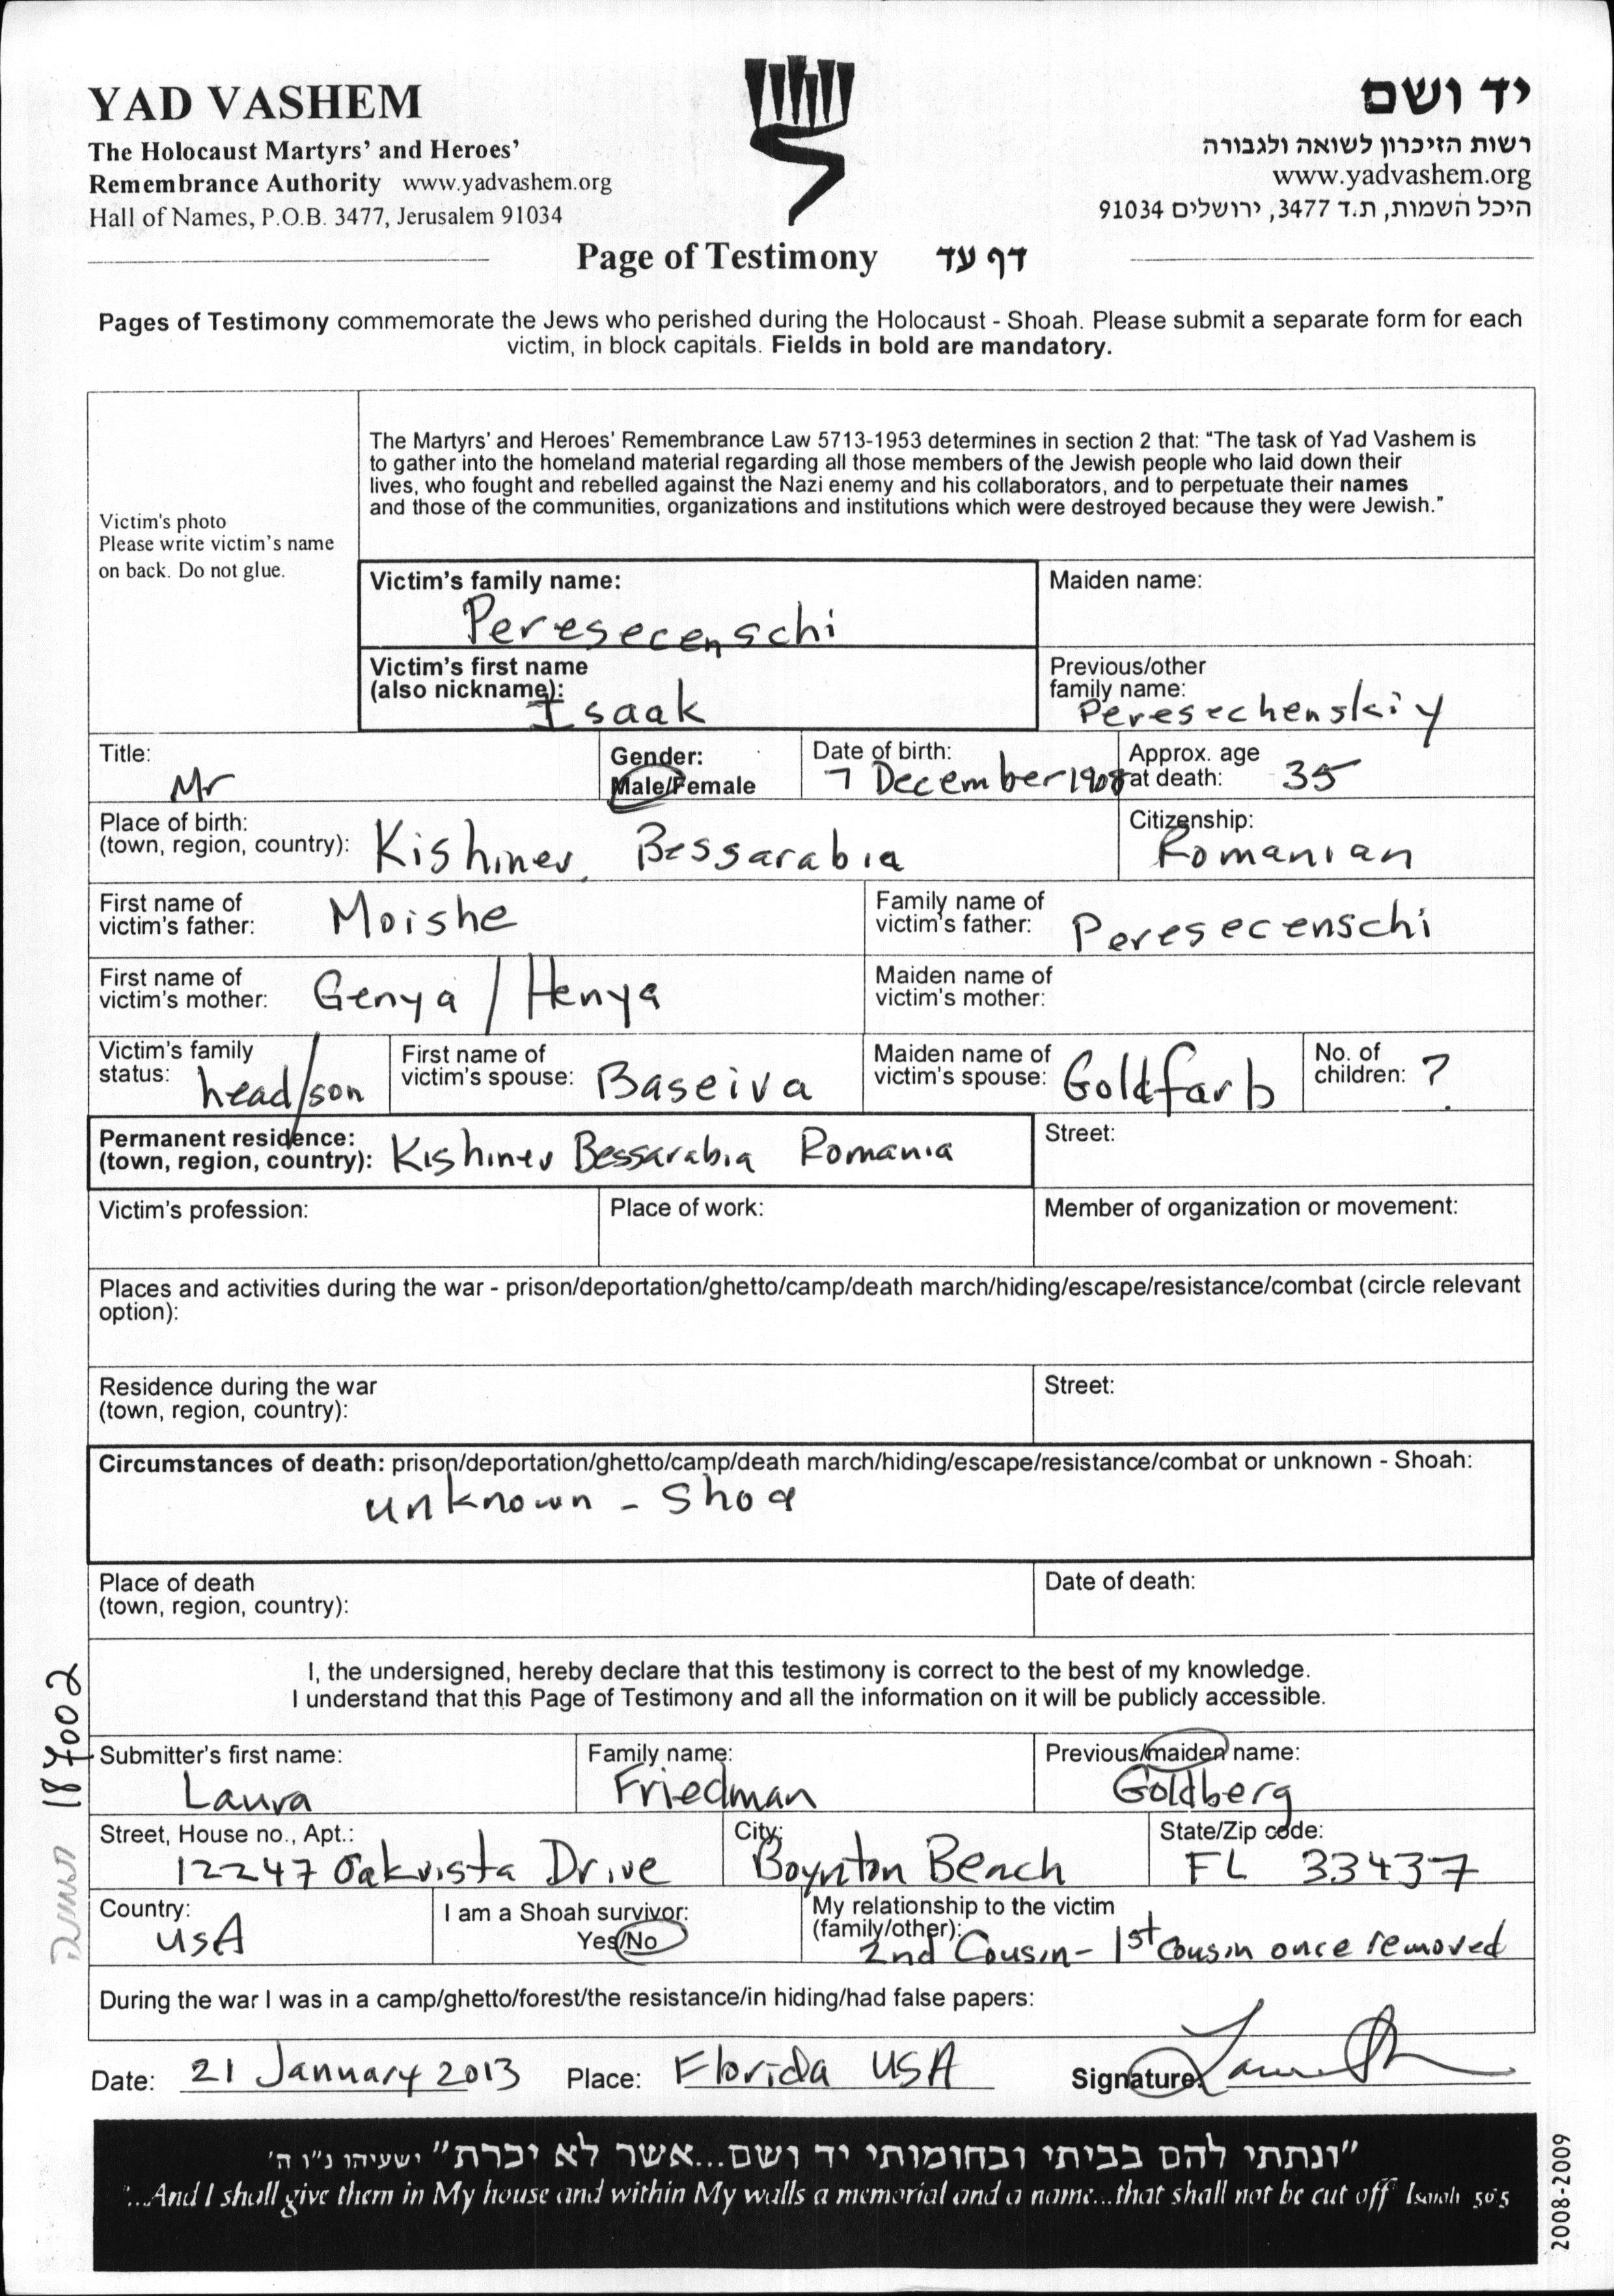 YAD VASHEM
The Holocaust Martyrs' and Heroes'
Remembrance Authority www.yadvashem.org
Hall of Names, P.O.B. 3477, Jerusalem 91034
יד ושם
רשות הזיכרון לשואה ולגבורה
www.yadvashem.org
היכל השמות, ת.ד 3477, ירושלים 91034
Page of Testimony דף עד
Pages of Testimony commemorate the Jews who perished during the Holocaust - Shoah. Please submit a separate form for each
victim, in block capitals. Fields in bold are mandatory.
Victim's photo
Please write victim's name
on back. Do not glue.
The Martyrs' and Heroes' Remembrance Law 5713-1953 determines in section 2 that: "The task of Yad Vashem is
to gather into the homeland material regarding all those members of the Jewish people who laid down their
lives, who fought and rebelled against the Nazi enemy and his collaborators, and to perpetuate their names
and those of the communities, organizations and institutions which were destroyed because they were Jewish."
Victim's family name:
Peresecenschi
Maiden name:
Victim's first name
(also nickname):
Isaak
Previous/other
family name:
Peresechenskiy
Title:
Mr
Gender:
Male/Female
Date of birth:
7 December 1908
Approx. age
at death: 35
Place of birth:
(town, region, country): Kishinev, Bessarabia
Citizenship:
Romanian
First name of
victim's father: Moishe
Family name of
victim's father: Peresecenschi
First name of
victim's mother: Genya / Henya
Maiden name of
victim's mother:
Victim's family
status: head/son
First name of
victim's spouse: Baseiva
Maiden name of
victim's spouse: Goldfarb
No. of
children: ?
Permanent residence:
(town, region, country): Kishinev Bessarabia Romania
Street:
Victim's profession:
Place of work:
Member of organization or movement:
Places and activities during the war - prison/deportation/ghetto/camp/death march/hiding/escape/resistance/combat (circle relevant
option):
Residence during the war
(town, region, country):
Street:
Circumstances of death: prison/deportation/ghetto/camp/death march/hiding/escape/resistance/combat or unknown - Shoah:
unknown - Shoa
Place of death
(town, region, country):
Date of death:
I, the undersigned, hereby declare that this testimony is correct to the best of my knowledge.
I understand that this Page of Testimony and all the information on it will be publicly accessible.
Submitter's first name:
Laura
Family name:
Friedman
Previous/maiden name:
Goldberg
Street, House no., Apt.:
12247 Oakvista Drive
City:
Boynton Beach
State/Zip code:
FL 33437
Country:
USA
I am a Shoah survivor:
Yes/No
My relationship to the victim
(family/other):
2nd Cousin - 1st cousin once removed
During the war I was in a camp/ghetto/forest/the resistance/in hiding/had false papers:
Date: 21 January 2013 Place: Florida USA Signature:
"ונתתי להם בביתי ובחומותי יד ושם...אשר לא יכרת" ישעיהו נ"ו ה'
"...And I shall give them in My house and within My walls a memorial and a name...that shall not be cut off" Isaiah 56:5
2008-2009